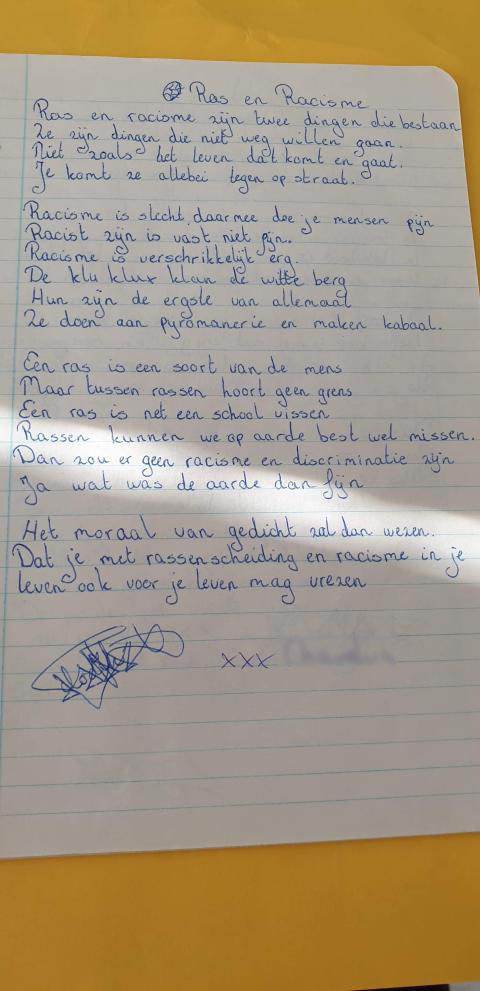 Ras en Racisme
Ras en racisme zijn twee dingen die bestaan
Ze zijn dingen die niet weg willen gaan.
Niet zoals het leven dat komt en gaat.
Je komt ze allebei tegen op straat.
Racisme is slecht, daarmee doe je mensen pijn
Racist zijn is vast niet fijn.
Racisme is verschrikkelijk erg.
De klu klux klan de witte berg
Hun zijn de ergste van allemaal
Ze doen aan pyromanerie en maken kabaal.
Een ras is een soort van de mens
Maar tussen rassen hoort geen grens
Een ras is net een school vissen
Rassen kunnen we op aarde best wel missen.
Dan zou er geen racisme en discriminatie zijn
Ja wat was de aarde dan fijn
Het moraal van gedicht zal dan wezen.
Dat je met rassenscheiding en racisme in je
leven ook voor je leven mag vrezen
xxx